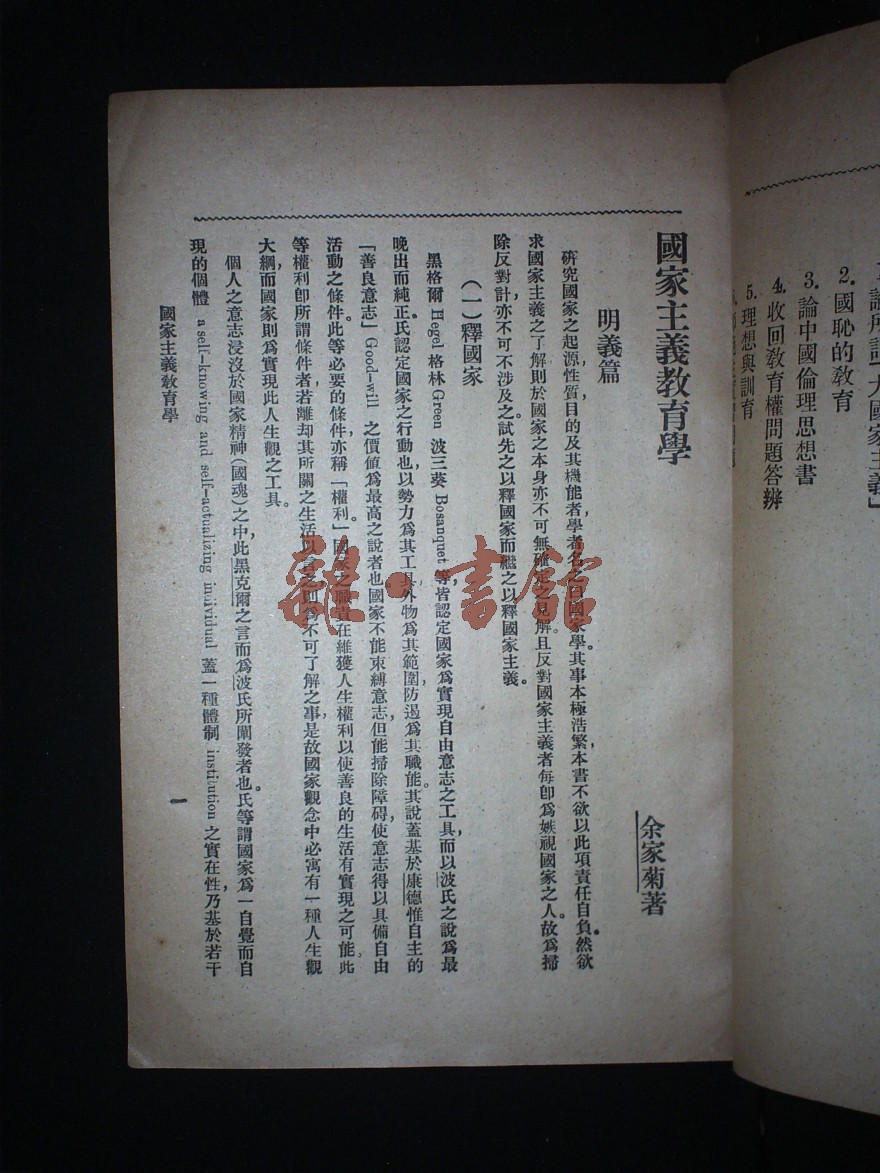 國家主義教育學
余家菊著
明義篇
研究國家之起源,性質目的及其機能者學者名之曰國家學。其事本極浩繁,本書不欲以此項責任自負。然欲
求國家主義之了解則於國家之本身亦不可無確定之見解且反對國家主義者每卽爲嫉視國家之人。故爲掃
除反對計,亦不可不涉及之。試先之以釋國家而繼之以釋國家主義。
(一)釋國家
黑格爾 Hegel 格林 Green 波三葵 Bosanquet 等,皆認定國家爲實現自由意志之工具,而以波氏之說爲最
晚出而純正。氏認定國家之行動也,以勢力爲其工具,外物爲其範圍,防遏爲其職能。其說蓋基於康德惟自主的
「善良意志」Good-will 之價値爲最高之說者也。國家不能束縛意志但能掃除障碍,使意志得以具備自由
活動之條件。此等必要的條件,亦稱「權利」。國家之職責在維獲人生權利以使善良的生活有實現之可能。此
等權利卽所謂條件者,若離却其所關之生活以言之,則爲不可了解之事,是故國家觀念中必寓有一種人生觀
大綱,而國家則爲實現此人生觀之工具。
個人之意志浸沒於國家精神(國魂)之中,此黑克爾之言而爲波氏所闡發者也。氏等謂國家爲一自覺而自
現的個體 a self-knowing and self-actualizing individual 蓋一種體制 institution 之實在性,乃基於若干
國家主義教育學
一
大國家主義」
2. 國恥的敎育
3. 論中國倫理思想書
4. 收回敎育權問題答辨
5. 理想與訓育
雜·書館